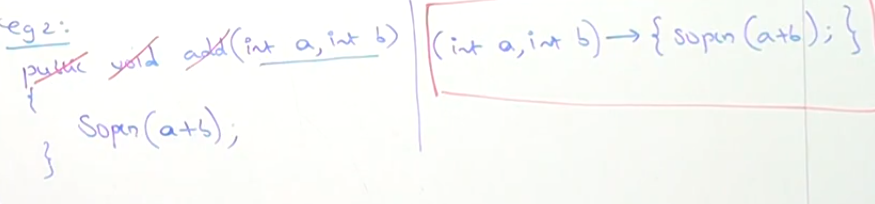 eg 2:
public void add(int a, int b)
{
Sopln(a+b);
}
(int a, int b) → { sopln(a+b); }